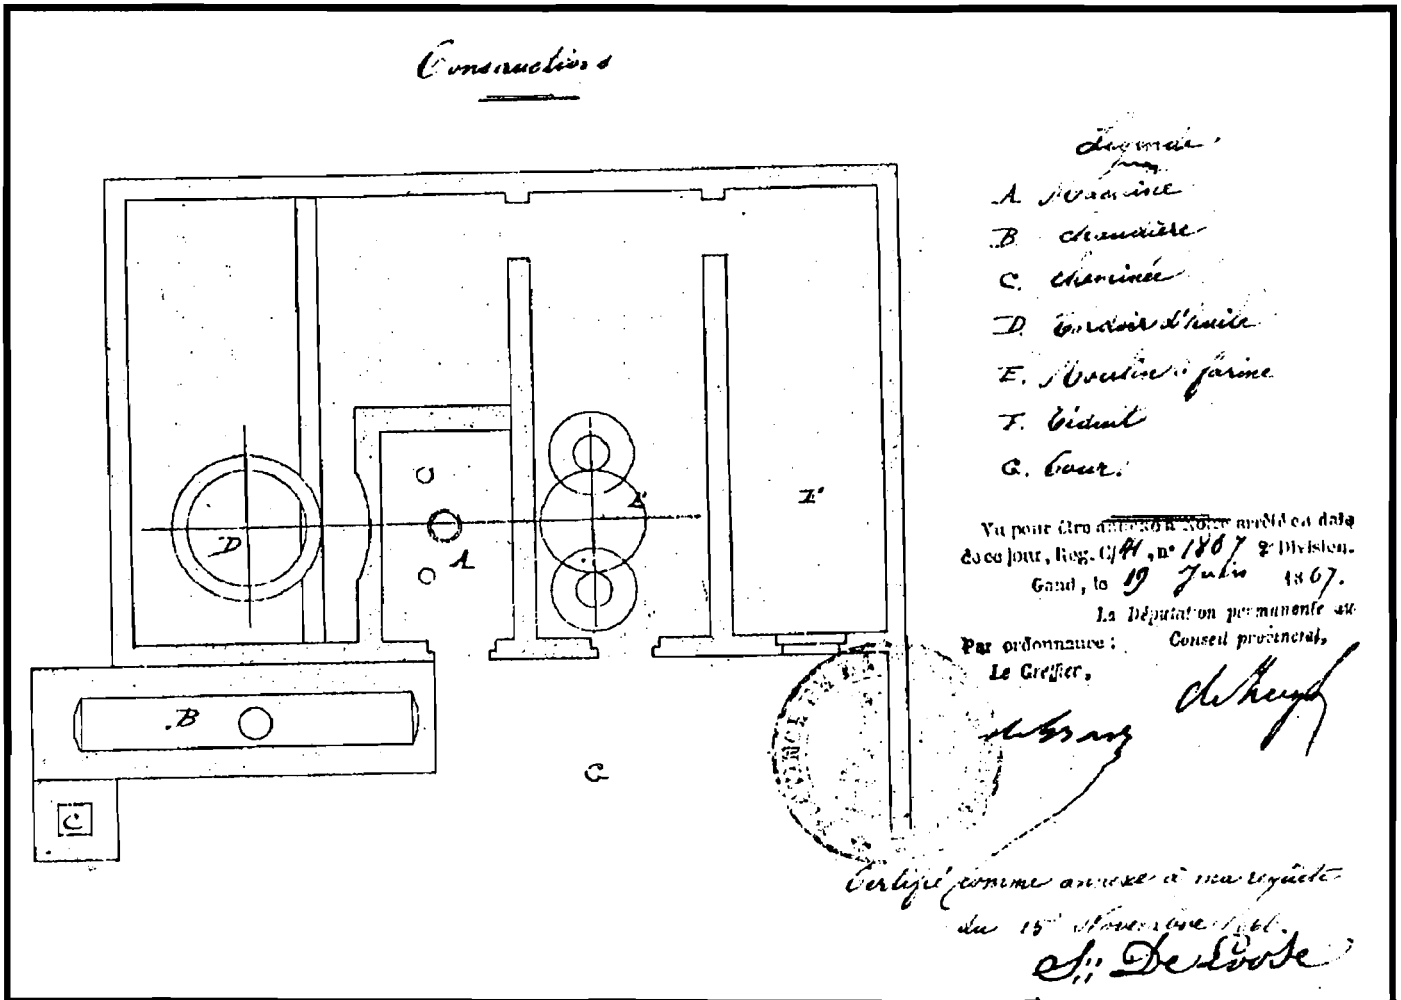 Constructions
Légende.
A. Machine
B chaudière
C. cheminée
D. tordoir d'huile
E. Moulin à farine
F. Réduit
G. Cour.
D
A
E
F
B
G
C
Vu pour être annexé à notre arrêté en date
de ce jour, Reg. C/41, n° 1867 2e Division.
Gand, le 19 Juin 1867.
La Députation permanente du
Conseil provincial,
Par ordonnance :
Le Greffier,
Certifié comme annexe à ma requête
du 15 Novembre
De Loose